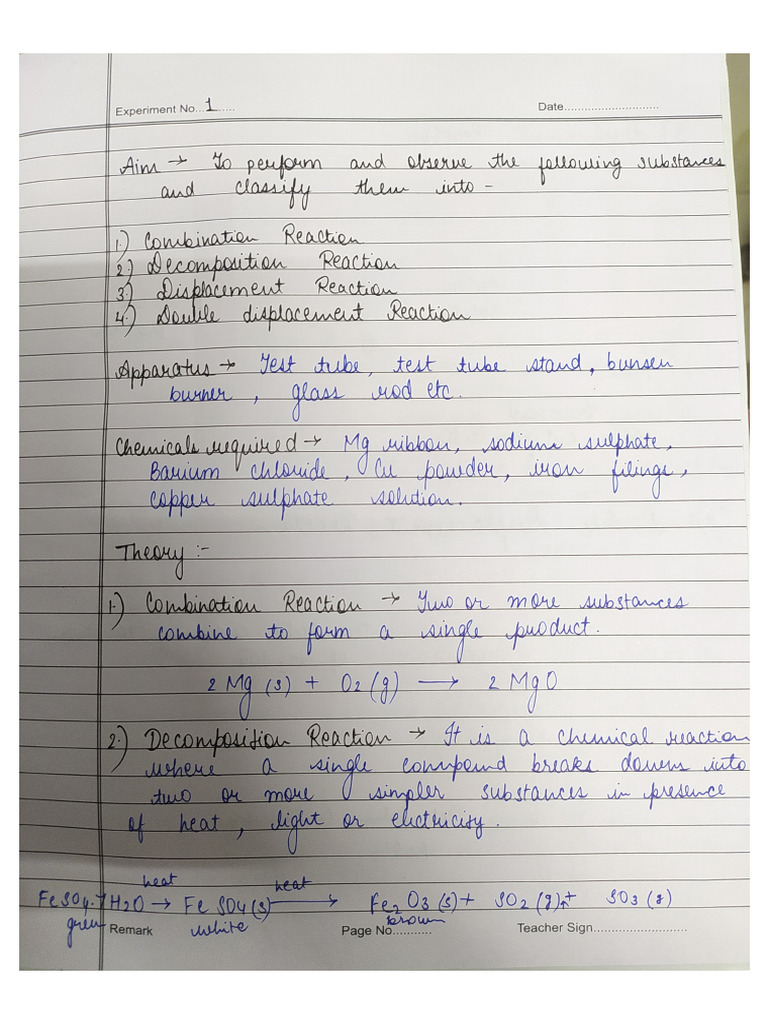 Experiment No...1..... Date............................
Aim → To perform and observe the following substances
and classify them into -
1.) Combination Reaction
2.) Decomposition Reaction
3.) Displacement Reaction
4.) Double displacement Reaction
Apparatus → Test tube, test tube stand, bunsen
burner, glass rod etc.
Chemicals required → Mg ribbon, sodium sulphate,
Barium chloride, Cu powder, iron filings,
copper sulphate solution.
Theory :-
1.) Combination Reaction → Two or more substances
combine to form a single product.
2 Mg (s) + O2 (g) → 2 MgO
2.) Decomposition Reaction → It is a chemical reaction
where a single compound breaks down into
two or more simpler substances in presence
of heat, light or electricity.
heat heat
FeSO4.7H2O → FeSO4(s) → Fe2O3(s) + SO2(g)↑ + SO3(g)
green white brown
Remark Page No........... Teacher Sign..........................